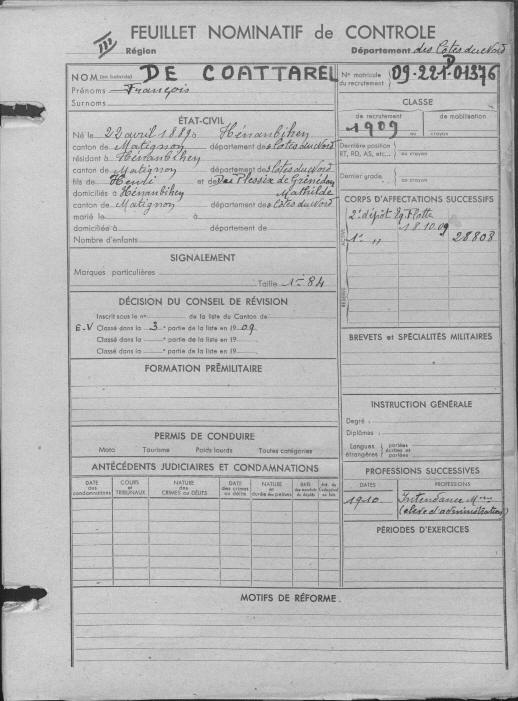 FEUILLET NOMINATIF de CONTROLE
III Région
Département des Côtes du Nord
NOM (en batarde) DE COATTAREL
Prénoms François
Surnoms
ÉTAT-CIVIL
Né le 22 avril 1889 à Hénanbihen
canton de Matignon département de Côtes du Nord
résidant à Hénanbihen
canton de Matignon département de Côtes du Nord
fils de Henri et de Du Plessix de Grénédan
domiciliés à Hénanbihen Mathilde
canton de Matignon département de Côtes du Nord
marié le à
domiciliée à département de
Nombre d'enfants
SIGNALEMENT
Marques particulières
Taille 1m 84
DÉCISION DU CONSEIL DE RÉVISION
Inscrit sous le n° de la liste du Canton de
E.V Classé dans la 3 e partie de la liste en 1909
Classé dans la e partie de la liste en 19
Classé dans la e partie de la liste en 19
FORMATION PRÉMILITAIRE
PERMIS DE CONDUIRE
Moto Tourisme Poids lourds Toutes catégories
ANTÉCÉDENTS JUDICIAIRES ET CONDAMNATIONS
DATE des condamnations
COURS et TRIBUNAUX
NATURE des CRIMES ou DÉLITS
DATE des crimes ou délits
NATURE et durée des peines
N° matricule du recrutement 09-221-01376
CLASSE
de recrutement de mobilisation
1909 au crayon
Dernière position RT, RD, AS, etc... au crayon
Dernier grade au crayon
CORPS D'AFFECTATIONS SUCCESSIFS
ACTIVE
2e dépôt Eq. Flotte
18.10.09
1er " 28808
RÉSERVES
BREVETS et SPÉCIALITÉS MILITAIRES
INSTRUCTION GÉNÉRALE
Degré
Diplômes
Langues étrangères parlées écrites et parlées
PROFESSIONS SUCCESSIVES
DATES PROFESSIONS
1910 Intendance
(élève d'administration)
PÉRIODES D'EXERCICES
MOTIFS DE RÉFORME